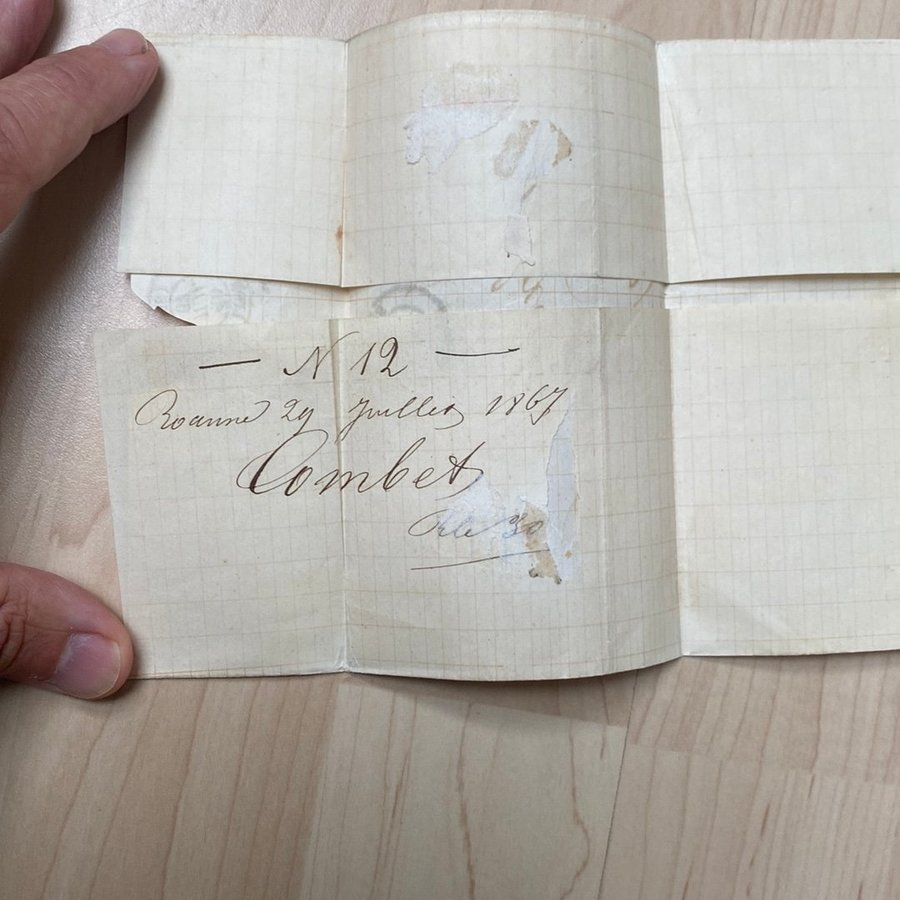 — N 12 —
Roanne 29 Juillet 1867
Combet